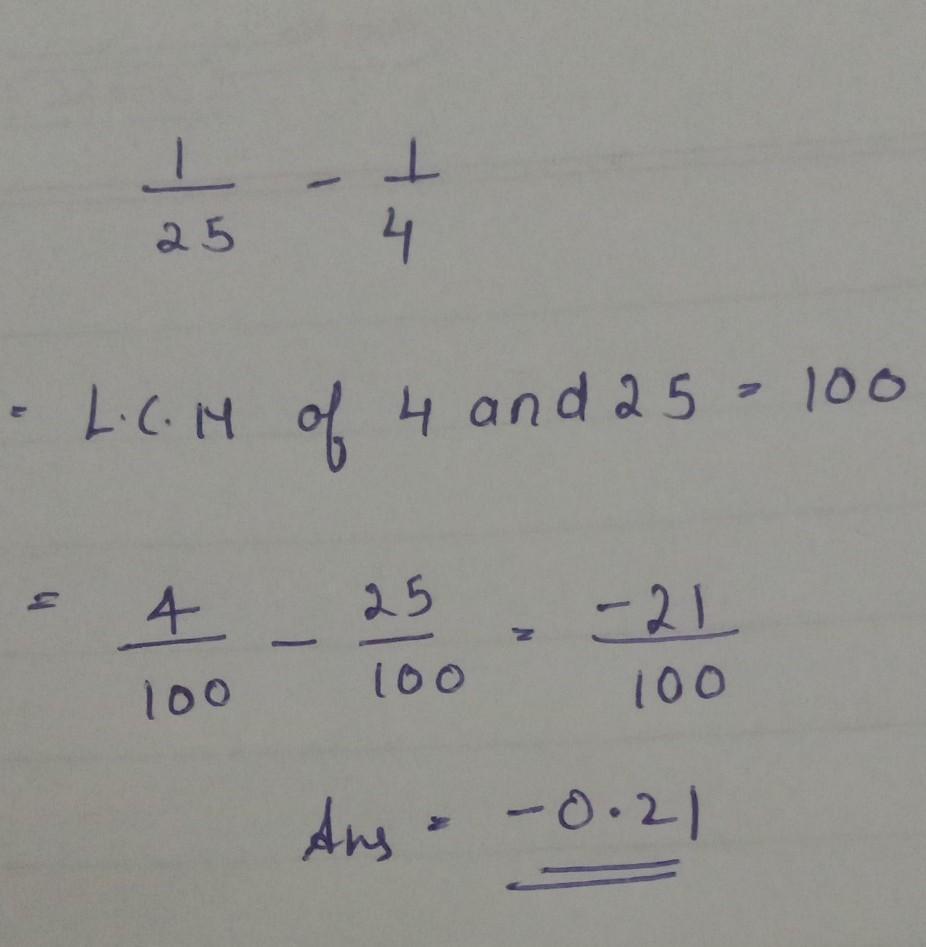 1/25 - 1/4
= L.C.M of 4 and 25 = 100
= 4/100 - 25/100 = -21/100
Ans = -0.21